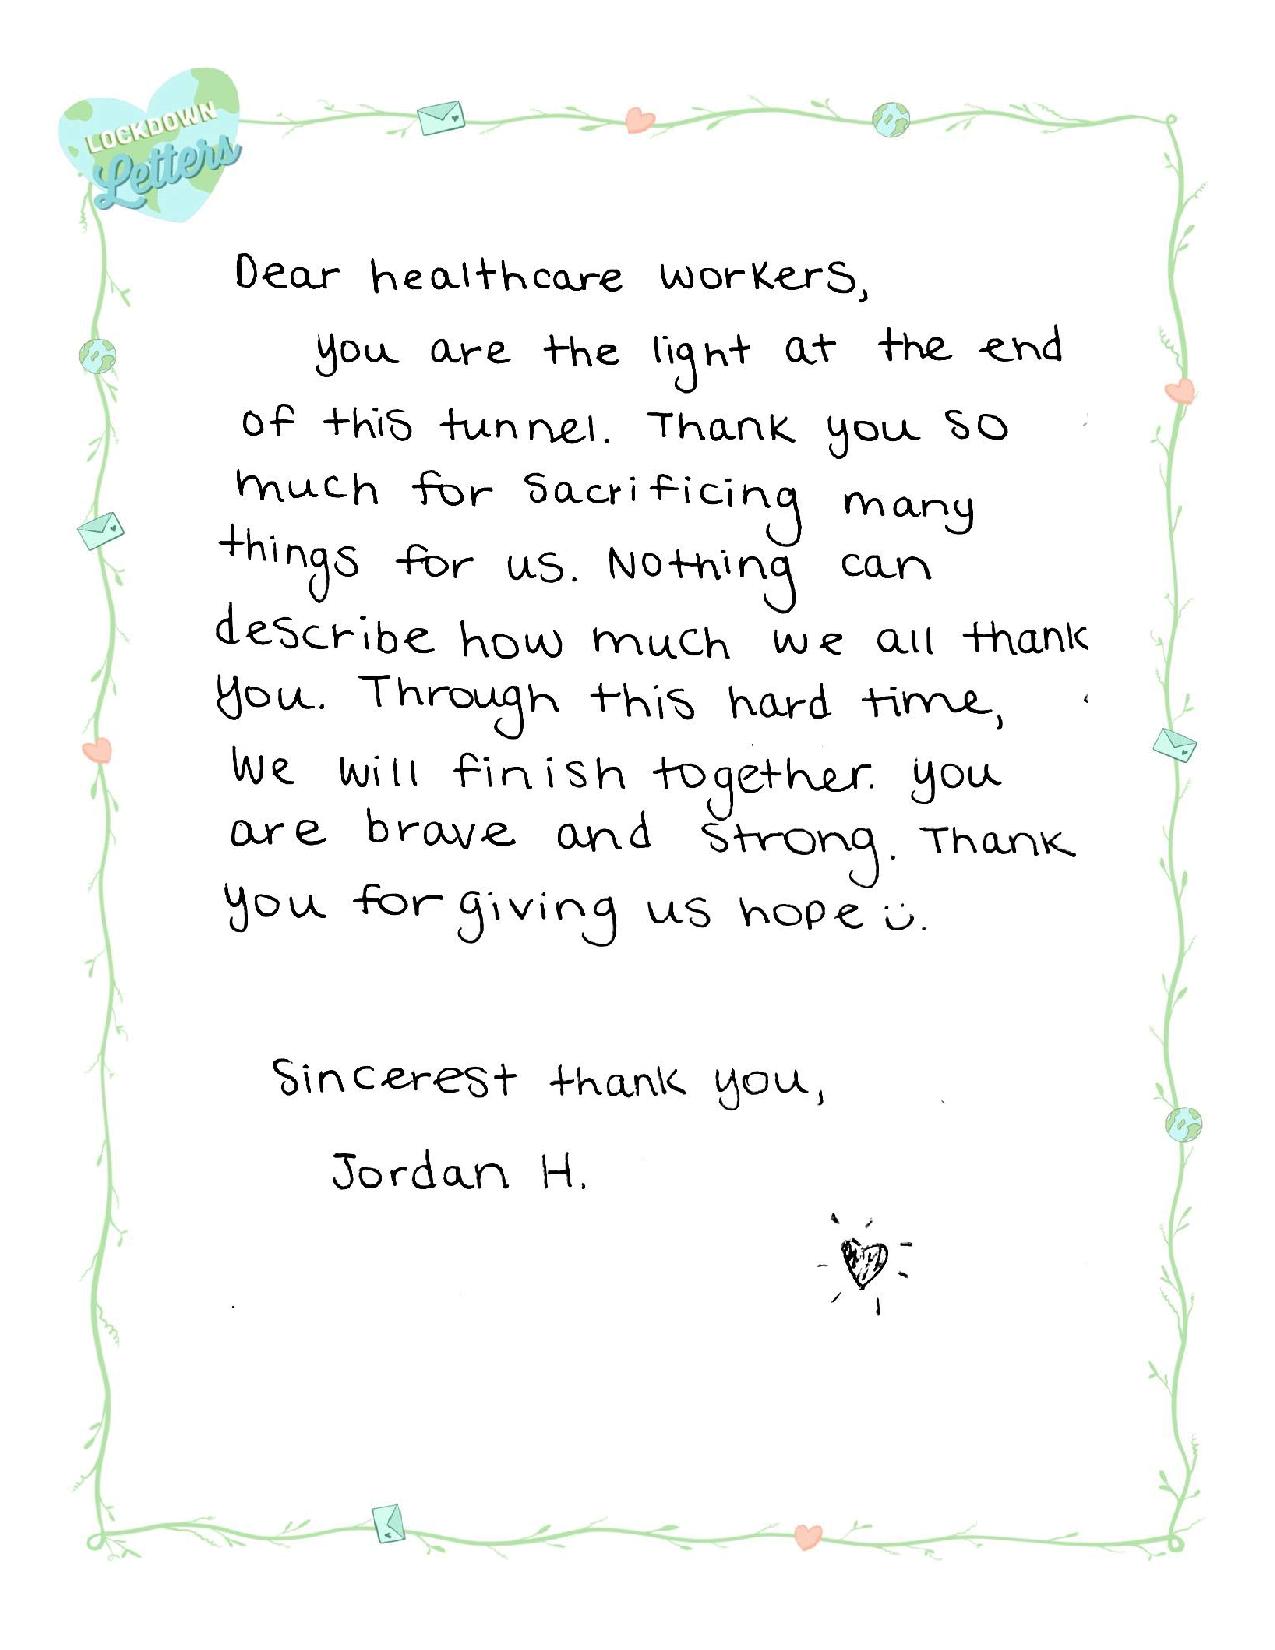 LOCKDOWN
Letters
Dear healthcare workers,
you are the light at the end
of this tunnel. Thank you so
much for sacrificing many
things for us. Nothing can
describe how much we all thank
you. Through this hard time,
we will finish together. you
are brave and strong. Thank
you for giving us hope :).
Sincerest thank you,
Jordan H.